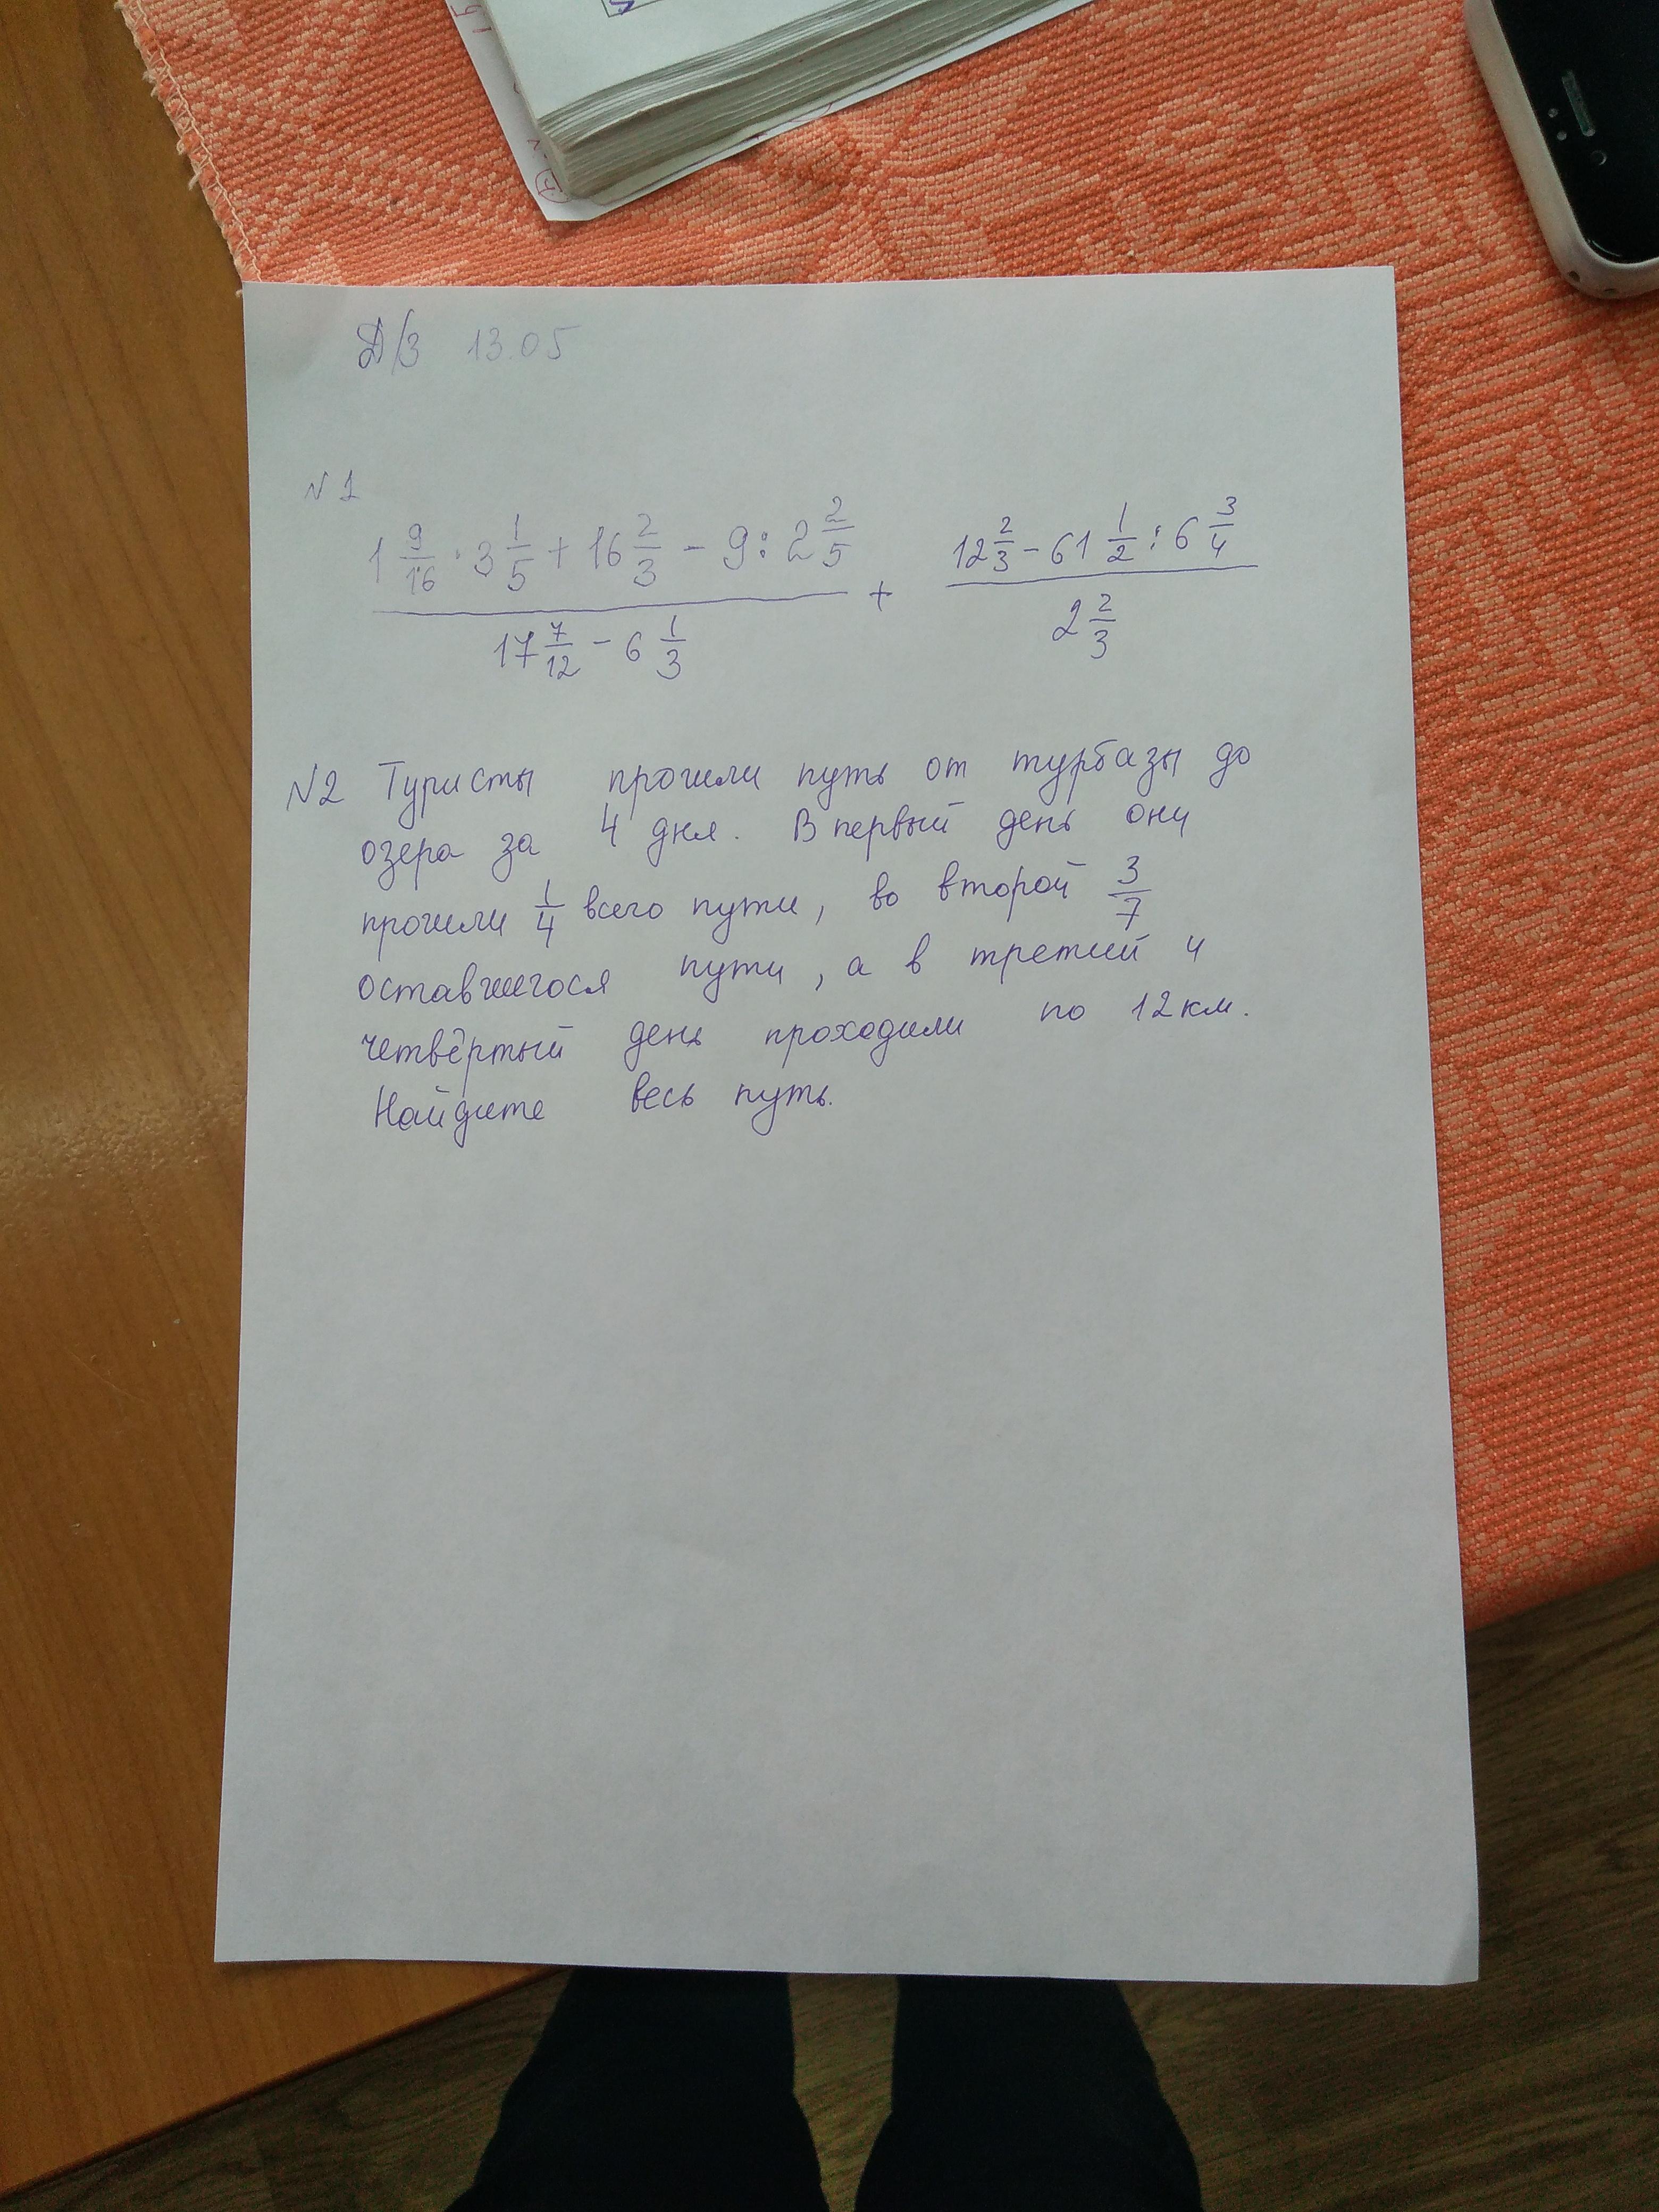 Д/З 13.05
N 1
1 9/16 · 3 1/5 + 16 2/3 - 9 : 2 2/5 + 12 2/3 - 61 1/2 : 6 3/4
17 7/12 - 6 1/3 2 2/3
N2 Туристы прошли путь от турбазы до
озера за 4 дня. В первый день они
прошли 1/4 всего пути, во второй 3/7
оставшегося пути, а в третий и
четвёртый день проходили по 12 км.
Найдите весь путь.